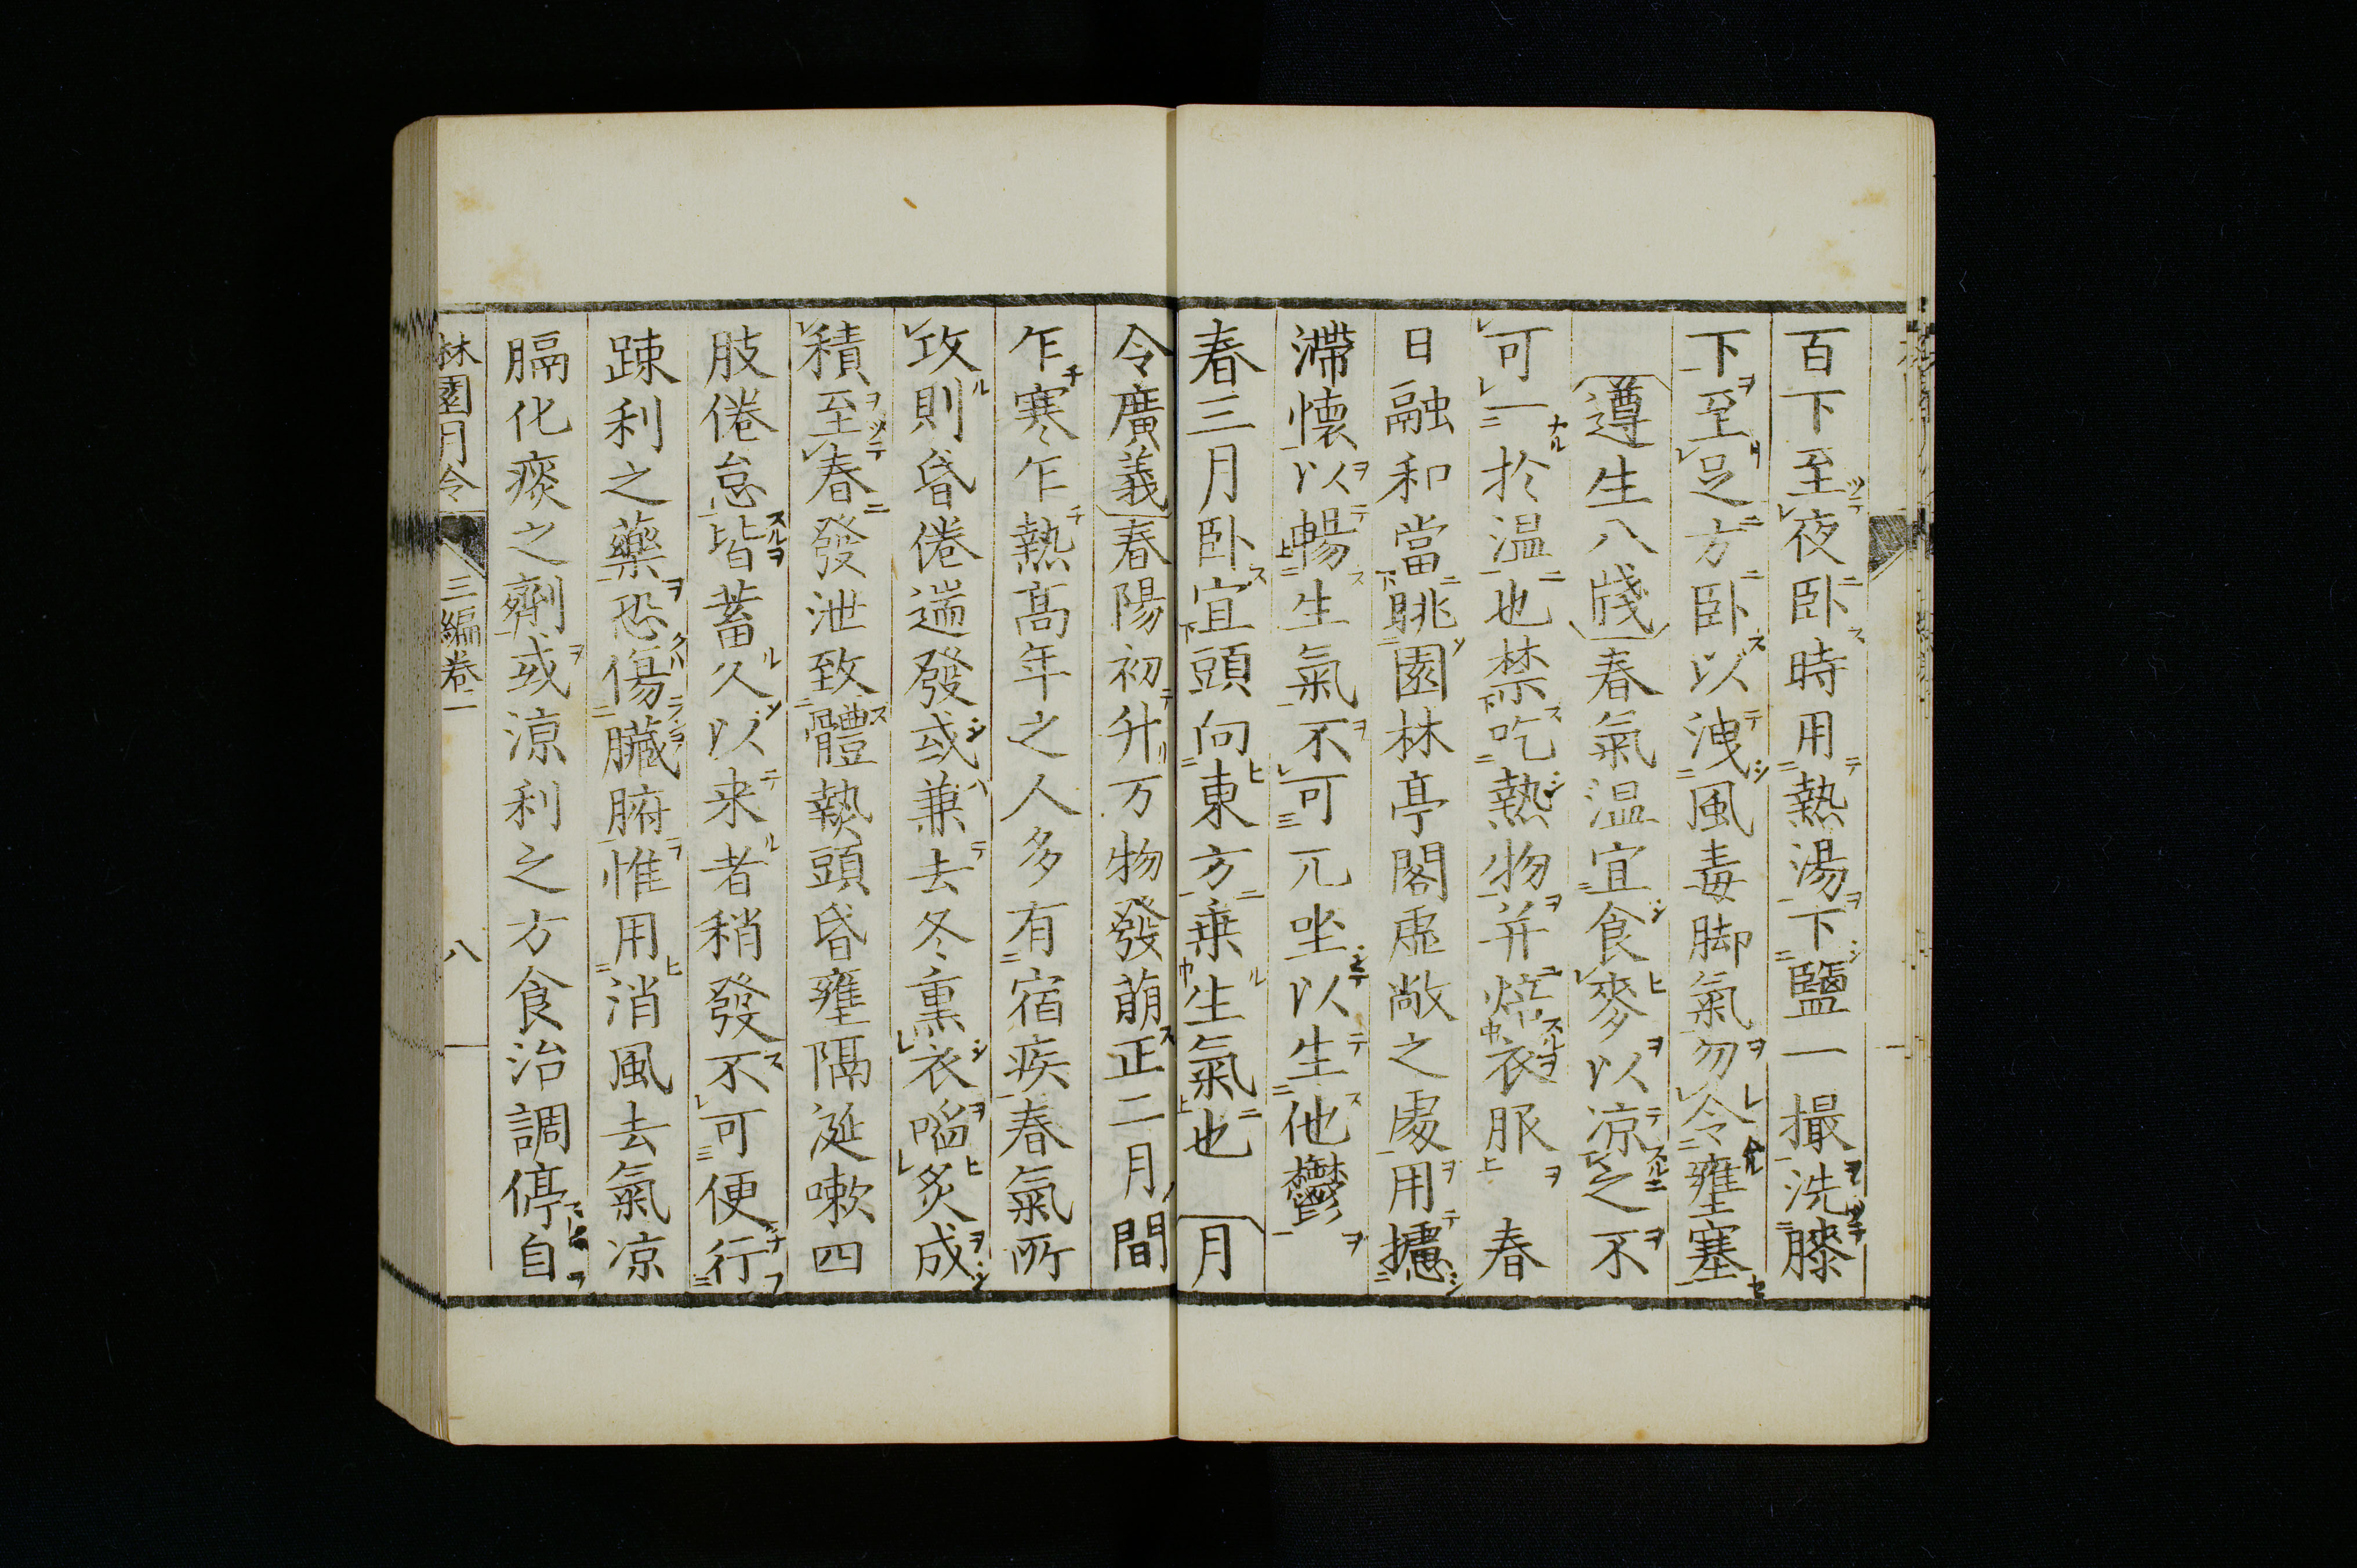 百下至夜卧時用熱湯下鹽一撮洗膝
下至足方卧以洩風毒脚氣勿令壅塞
遵生八牋春氣温宜食麥以凉之不
可一於温也禁吃熱物并焙衣服春
日融和當眺園林亭閣虚敞之處用攄
滯懐以暢生氣不可兀坐以生他鬱
春三月卧宜頭向東方乗生氣也月
令廣義春陽初升万物發萠正二月間
乍寒乍熱髙年之人多有宿疾春氣所
攻則昏倦遄發或兼去冬熏衣啗炙成
積至春發泄致體熱頭昏壅隔涎嗽四
肢倦怠皆蓄久以来者稍發不可便行
踈利之藥恐傷臓腑惟用消風去氣凉
膈化痰之劑或涼利之方食治調停自
林園月令 三編卷一 八